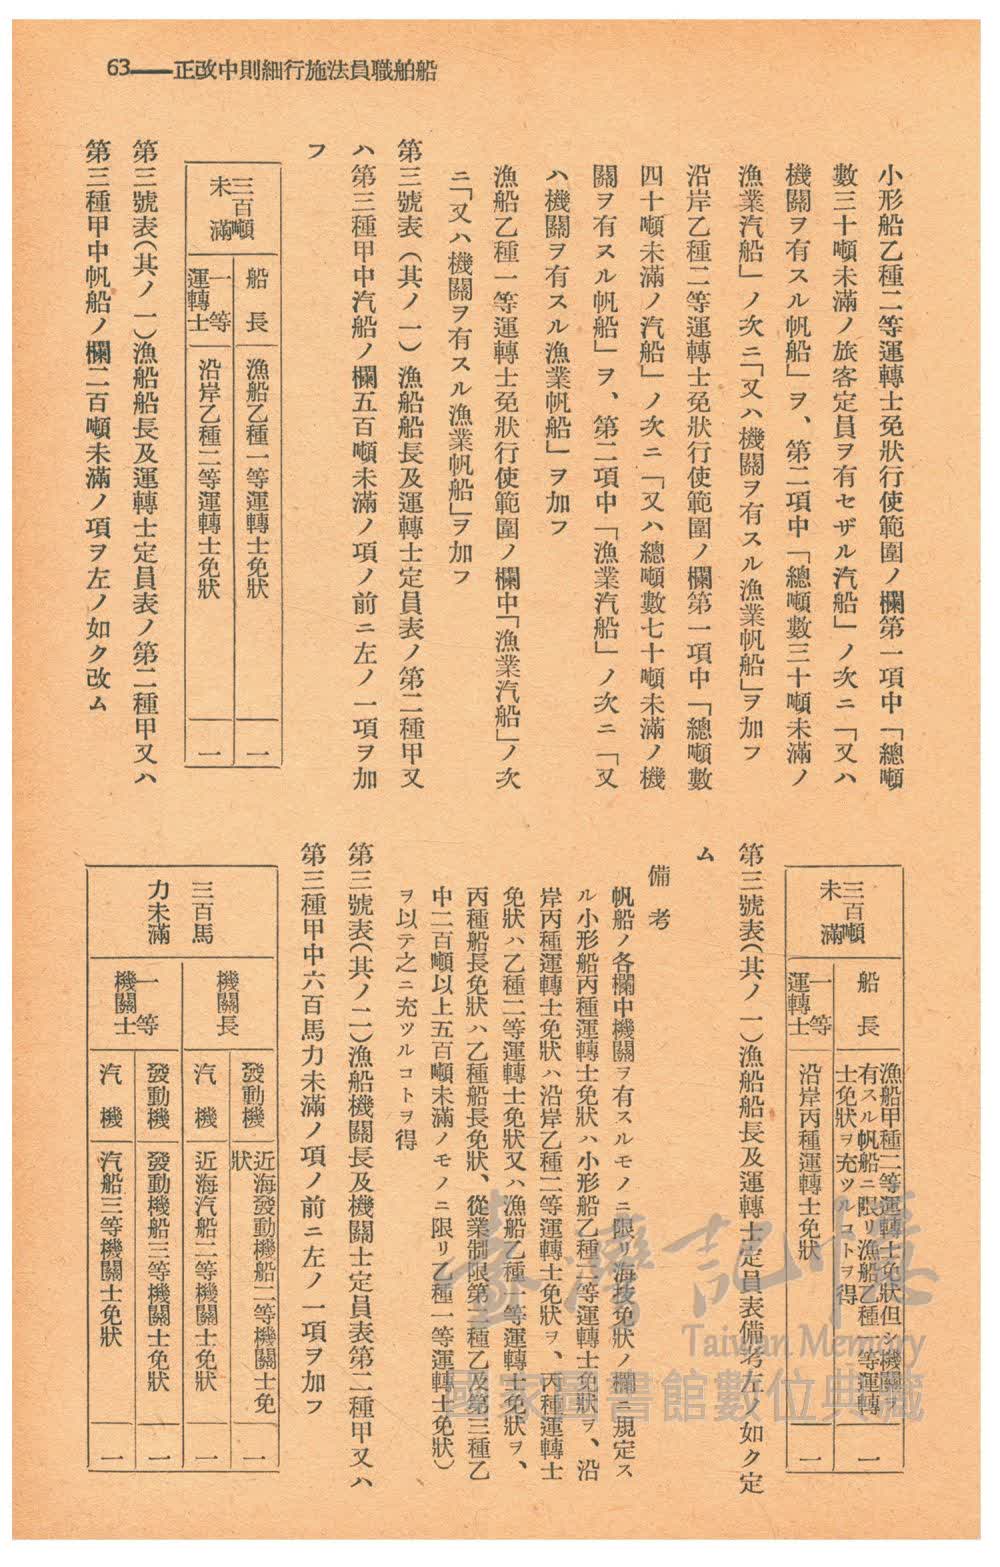 63——正改中則細行施法員職舶船
小形船乙種二等運轉士免狀行使範圍ノ欄第一項中「總噸
數三十噸未滿ノ旅客定員ヲ有セザル汽船」ノ次ニ「又ハ
機關ヲ有スル帆船」ヲ、第二項中「總噸數三十噸未滿ノ
漁業汽船」ノ次ニ「又ハ機關ヲ有スル漁業帆船」ヲ加フ
沿岸乙種二等運轉士免狀行使範圍ノ欄第一項中「總噸數
四十噸未滿ノ汽船」ノ次ニ「又ハ總噸數七十噸未滿ノ機
關ヲ有スル帆船」ヲ、第二項中「漁業汽船」ノ次ニ「又
ハ機關ヲ有スル漁業帆船」ヲ加フ
漁船乙種一等運轉士免狀行使範圍ノ欄中「漁業汽船」ノ次
ニ「又ハ機關ヲ有スル漁業帆船」ヲ加フ
第三號表（其ノ一）漁船船長及運轉士定員表ノ第二種甲又
ハ第三種甲中汽船ノ欄五百噸未滿ノ項ノ前ニ左ノ一項ヲ加
フ
三百噸
未滿
船長
漁船乙種一等運轉士免狀
一
一等
運轉士
沿岸乙種二等運轉士免狀
一
第三號表（其ノ一）漁船船長及運轉士定員表ノ第二種甲又ハ
第三種甲中帆船ノ欄二百噸未滿ノ項ヲ左ノ如ク改ム
三百噸
未滿
船長
漁船甲種二等運轉士免狀但シ機關ヲ
有スル帆船ニ限リ漁船乙種一等運轉
士免狀ヲ充ツルコトヲ得
一
一等
運轉士
沿岸丙種運轉士免狀
一
第三號表（其ノ一）漁船船長及運轉士定員表備考左ノ如ク定
ム
備考
帆船ノ各欄中機關ヲ有スルモノニ限リ海技免狀ノ欄ニ規定ス
ル小形船丙種運轉士免狀ハ小形船乙種二等運轉士免狀ヲ、沿
岸丙種運轉士免狀ハ沿岸乙種二等運轉士免狀ヲ、丙種運轉士
免狀ハ乙種二等運轉士免狀又ハ漁船乙種一等運轉士免狀ヲ、
丙種船長免狀ハ乙種船長免狀、從業制限第二種乙及第三種乙
中二百噸以上五百噸未滿ノモノニ限リ乙種一等運轉士免狀）
ヲ以テ之ニ充ツルコトヲ得
第三號表（其ノ二）漁船機關長及機關士定員表第二種甲又ハ
第三種甲中六百馬力未滿ノ項ノ前ニ左ノ一項ヲ加フ
三百馬
力未滿
機關長
發動機
近海發動機船二等機關士免
狀
一
汽機
近海汽船二等機關士免狀
一
一等
機關士
發動機
發動機船三等機關士免狀
一
汽機
汽船三等機關士免狀
一
臺灣記憶
Taiwan Memory
國家圖書館數位典藏